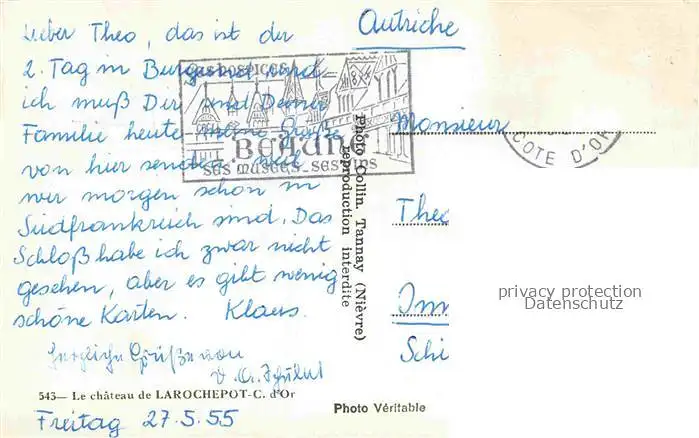 Lieber Theo, das ist der
2. Tag in Burgund und
ich muß Dir und Deiner
Familie heute meine Grüße
von hier senden, weil
wir morgen schon in
Südfrankreich sind. Das
Schloß habe ich zwar nicht
gesehen, aber es gibt wenig
schöne Karten. Klaus.
Herzliche Grüße von
543— Le château de LAROCHEPOT-C. d'Or
Freitag 27.5.55
SES HOSPICES
BEAUNE
SES MUSÉES_SES VINS
Photo Collin. Tannay (Nièvre)
reproduction interdite
Photo Véritable
Autriche
Monsieur
COTE D'OR
Theo
Inn
Schi
privacy protection
Datenschutz